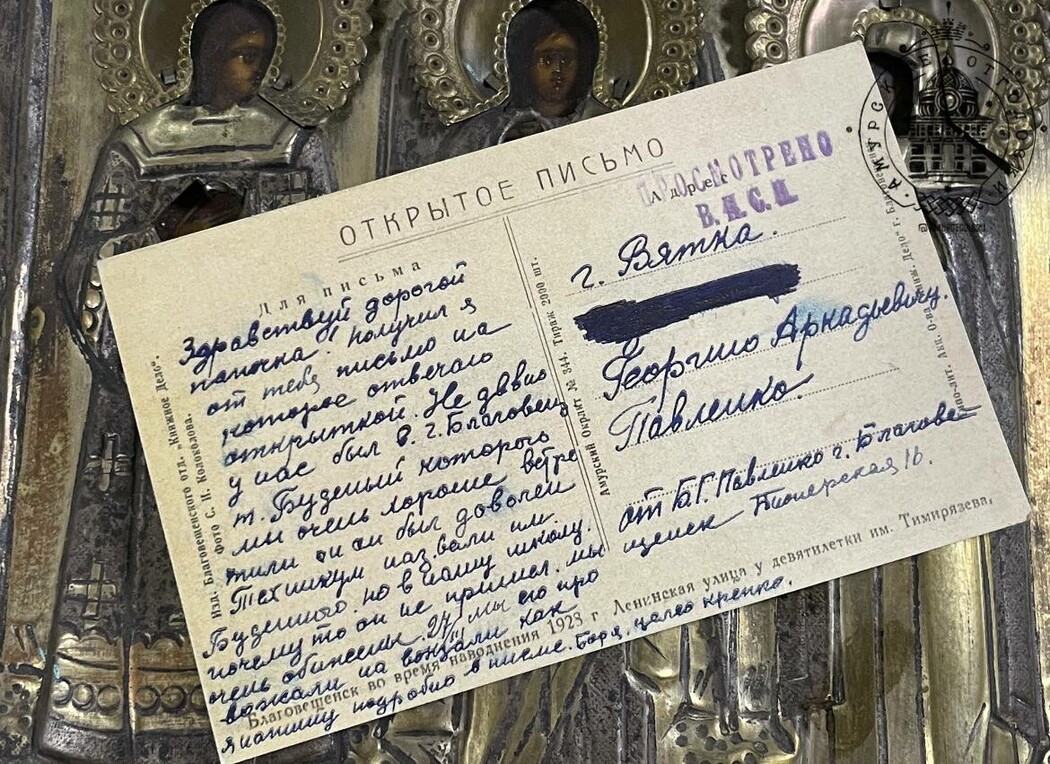 ОТКРЫТОЕ ПИСЬМО
Для письма
Здравствуй дорогой
папочка! Получил я
от тебя письмо на
которое отвечаю
открыткой. Не давно
у нас был в г. Благовещ
т. Буденый которого
мы очень хороше встре
тили он был доволен
Техникум назвали им.
Буденного. но в нашу школу.
почему то он не пришел. мы
очень обижены. 27/III мы его про
вожали на вокзали как
я напишу подробно в письме. Боря. целую крепко.
Адрес
ПРОСМОТРЕНО
г. Вятка.
Георгию Аркадьевичу.
Павленко.
от Б.Г. Павленко г. Благове
щенск Пионерская 16.
Изд. Благовещенского отд. „Книжное Дело".
Фото С. И. Колоколова.
Амурский Окрлит № 344. Тираж 2000 шт.
Благовещенск во время наводнения 1923 г. Ленинская улица у девятилетки им. Тимирязева.